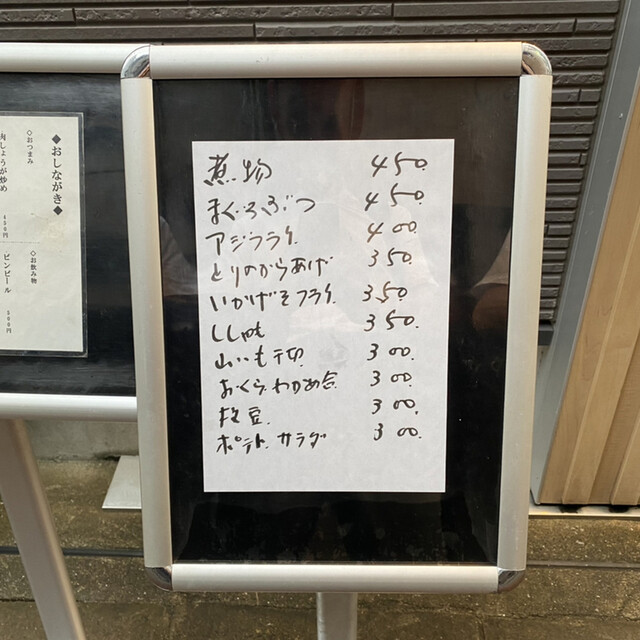 煮物 450.
まぐろぶつ 450.
アジフライ 400.
とりのからあげ 350.
いかげそフライ 350.
ししゃも 350.
山いも千切 300.
おくら・わかめ合 300.
枝豆 300.
ポテト.サラダ 300.
◆おしながき◆
◇おつまみ
肉しょうが炒め 450円
◇お飲み物
ビンビール 500円